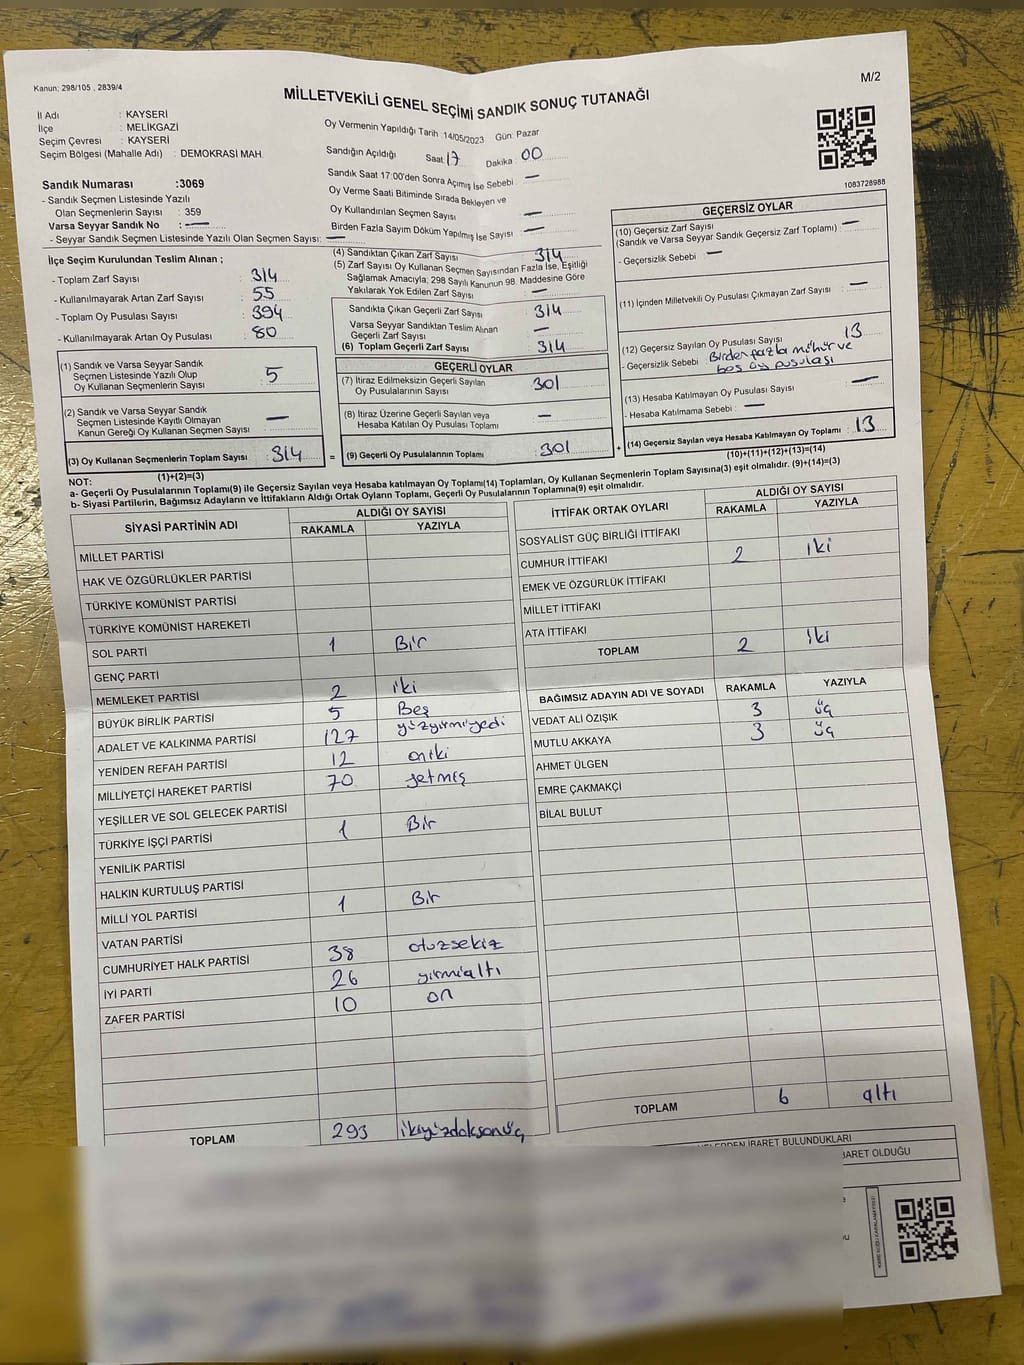 Kanun; 298/105 , 2839/4
M/2
MİLLETVEKİLİ GENEL SEÇİMİ SANDIK SONUÇ TUTANAĞI
İl Adı : KAYSERİ
İlçe : MELİKGAZİ
Seçim Çevresi : KAYSERİ
Seçim Bölgesi (Mahalle Adı) : DEMOKRASİ MAH.
Oy Vermenin Yapıldığı Tarih :14/05/2023 Gün: Pazar
Sandığın Açıldığı Saat: 17 Dakika: 00
Sandık Saat 17:00'den Sonra Açımış İse Sebebi : —
Oy Verme Saati Bitiminde Sırada Bekleyen ve
Oy Kullandırılan Seçmen Sayısı : —
Birden Fazla Sayım Döküm Yapılmış İse Sayısı : —
1083728988
Sandık Numarası :3069
- Sandık Seçmen Listesinde Yazılı
Olan Seçmenlerin Sayısı : 359
Varsa Seyyar Sandık No : —
- Seyyar Sandık Seçmen Listesinde Yazılı Olan Seçmen Sayısı: —
İlçe Seçim Kurulundan Teslim Alınan ;
- Toplam Zarf Sayısı : 314
- Kullanılmayarak Artan Zarf Sayısı : 55
- Toplam Oy Pusulası Sayısı : 394
- Kullanılmayarak Artan Oy Pusulası : 80
(1) Sandık ve Varsa Seyyar Sandık
Seçmen Listesinde Yazılı Olup
Oy Kullanan Seçmenlerin Sayısı : 5
(2) Sandık ve Varsa Seyyar Sandık
Seçmen Listesinde Kayıtlı Olmayan
Kanun Gereği Oy Kullanan Seçmen Sayısı : —
(3) Oy Kullanan Seçmenlerin Toplam Sayısı : 314
(1)+(2)=(3)
(4) Sandıktan Çıkan Zarf Sayısı : 314
(5) Zarf Sayısı Oy Kullanan Seçmen Sayısından Fazla İse, Eşitliği
Sağlamak Amacıyla; 298 Sayılı Kanunun 98. Maddesine Göre
Yakılarak Yok Edilen Zarf Sayısı : —
Sandıkta Çıkan Geçerli Zarf Sayısı : 314
Varsa Seyyar Sandıktan Teslim Alınan
Geçerli Zarf Sayısı : —
(6) Toplam Geçerli Zarf Sayısı : 314
GEÇERLİ OYLAR
(7) İtiraz Edilmeksizin Geçerli Sayılan
Oy Pusulalarının Sayısı : 301
(8) İtiraz Üzerine Geçerli Sayılan veya
Hesaba Katılan Oy Pusulası Toplamı : —
= (9) Geçerli Oy Pusulalarının Toplamı : 301 +
GEÇERSİZ OYLAR
(10) Geçersiz Zarf Sayısı : —
(Sandık ve Varsa Seyyar Sandık Geçersiz Zarf Toplamı)
- Geçersizlik Sebebi : —
(11) İçinden Milletvekili Oy Pusulası Çıkmayan Zarf Sayısı : —
(12) Geçersiz Sayılan Oy Pusulası Sayısı : 13
- Geçersizlik Sebebi : Birden fazla mühür ve
boş oy pusulası
(13) Hesaba Katılmayan Oy Pusulası Sayısı : —
- Hesaba Katılmama Sebebi : —
(14) Geçersiz Sayılan veya Hesaba Katılmayan Oy Toplamı : 13
(10)+(11)+(12)+(13)=(14)
NOT:
a- Geçerli Oy Pusulalarının Toplamı(9) ile Geçersiz Sayılan veya Hesaba katılmayan Oy Toplamı(14) Toplamları, Oy Kullanan Seçmenlerin Toplam Sayısına(3) eşit olmalıdır. (9)+(14)=(3)
b- Siyasi Partilerin, Bağımsız Adayların ve İttifakların Aldığı Ortak Oyların Toplamı, Geçerli Oy Pusulalarının Toplamına(9) eşit olmalıdır.
SİYASİ PARTİNİN ADI ALDIĞI OY SAYISI
RAKAMLA YAZIYLA
MİLLET PARTİSİ
HAK VE ÖZGÜRLÜKLER PARTİSİ
TÜRKİYE KOMÜNİST PARTİSİ
TÜRKİYE KOMÜNİST HAREKETİ
SOL PARTİ 1 Bir
GENÇ PARTİ
MEMLEKET PARTİSİ 2 iki
BÜYÜK BİRLİK PARTİSİ 5 Beş
ADALET VE KALKINMA PARTİSİ 127 yüzyirmiyedi
YENİDEN REFAH PARTİSİ 12 oniki
MİLLİYETÇİ HAREKET PARTİSİ 70 yetmiş
YEŞİLLER VE SOL GELECEK PARTİSİ
TÜRKİYE İŞÇİ PARTİSİ 1 Bir
YENİLİK PARTİSİ
HALKIN KURTULUŞ PARTİSİ
MİLLİ YOL PARTİSİ 1 Bir
VATAN PARTİSİ
CUMHURİYET HALK PARTİSİ 38 otuzsekiz
İYİ PARTİ 26 yirmialtı
ZAFER PARTİSİ 10 on
TOPLAM 293 ikiyüzdoksanüç
İTTİFAK ORTAK OYLARI ALDIĞI OY SAYISI
RAKAMLA YAZIYLA
SOSYALİST GÜÇ BİRLİĞİ İTTİFAKI
CUMHUR İTTİFAKI 2 iki
EMEK VE ÖZGÜRLÜK İTTİFAKI
MİLLET İTTİFAKI
ATA İTTİFAKI
TOPLAM 2 iki
BAĞIMSIZ ADAYIN ADI VE SOYADI RAKAMLA YAZIYLA
VEDAT ALİ ÖZIŞIK 3 üç
MUTLU AKKAYA 3 üç
AHMET ÜLGEN
EMRE ÇAKMAKÇİ
BİLAL BULUT
TOPLAM 6 altı
İBARET BULUNDUKLARI
OLDUĞU